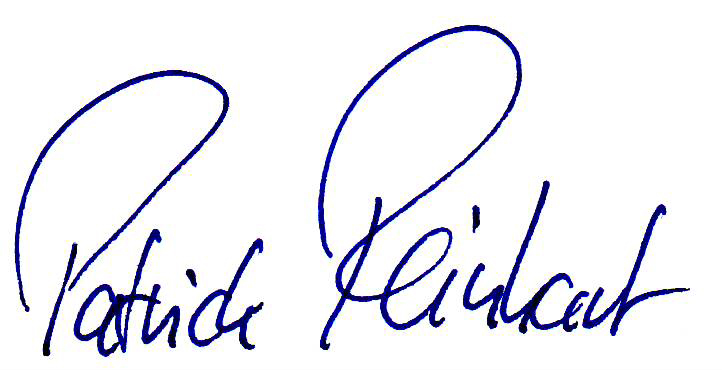 Patrick Reinhart